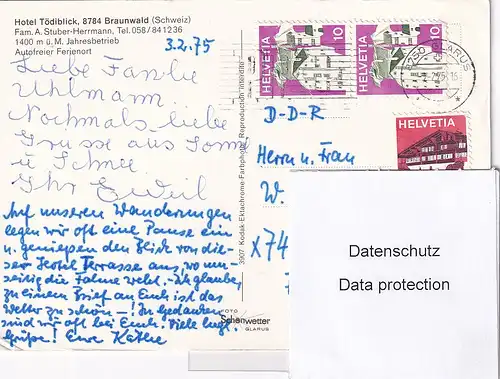 Hotel Tödiblick, 8784 Braunwald (Schweiz)
Fam. A. Stuber-Herrmann, Tel. 058/841236
1400 m ü. M. Jahresbetrieb
Autofreier Ferienort
3.2.75
Liebe Familie
Uhlmann.
Nochmals liebe
Grüsse aus Sonne
u Schnee
Ihr
Auf unseren Wanderungen
legen wir oft eine Pause ein
u. geniessen den Blick von die-
ser Hotel Terrasse aus, wo
die Fahne weht. Ich glaube,
zu einem Brief an Euch ist das
Wetter zu schön –! In Gedanken
sind wir oft bei Euch! Viele
Grüße! Eure Käthe
3907 Kodak-Ektachrome-Farbphoto Reproduction interdite
FOTO
Schönwetter
GLARUS
HELVETIA 10
HELVETIA 10
HELVETIA
8750 GLARUS
D-D-R
Herrn u. Frau
W.
X74
Datenschutz
Data protection